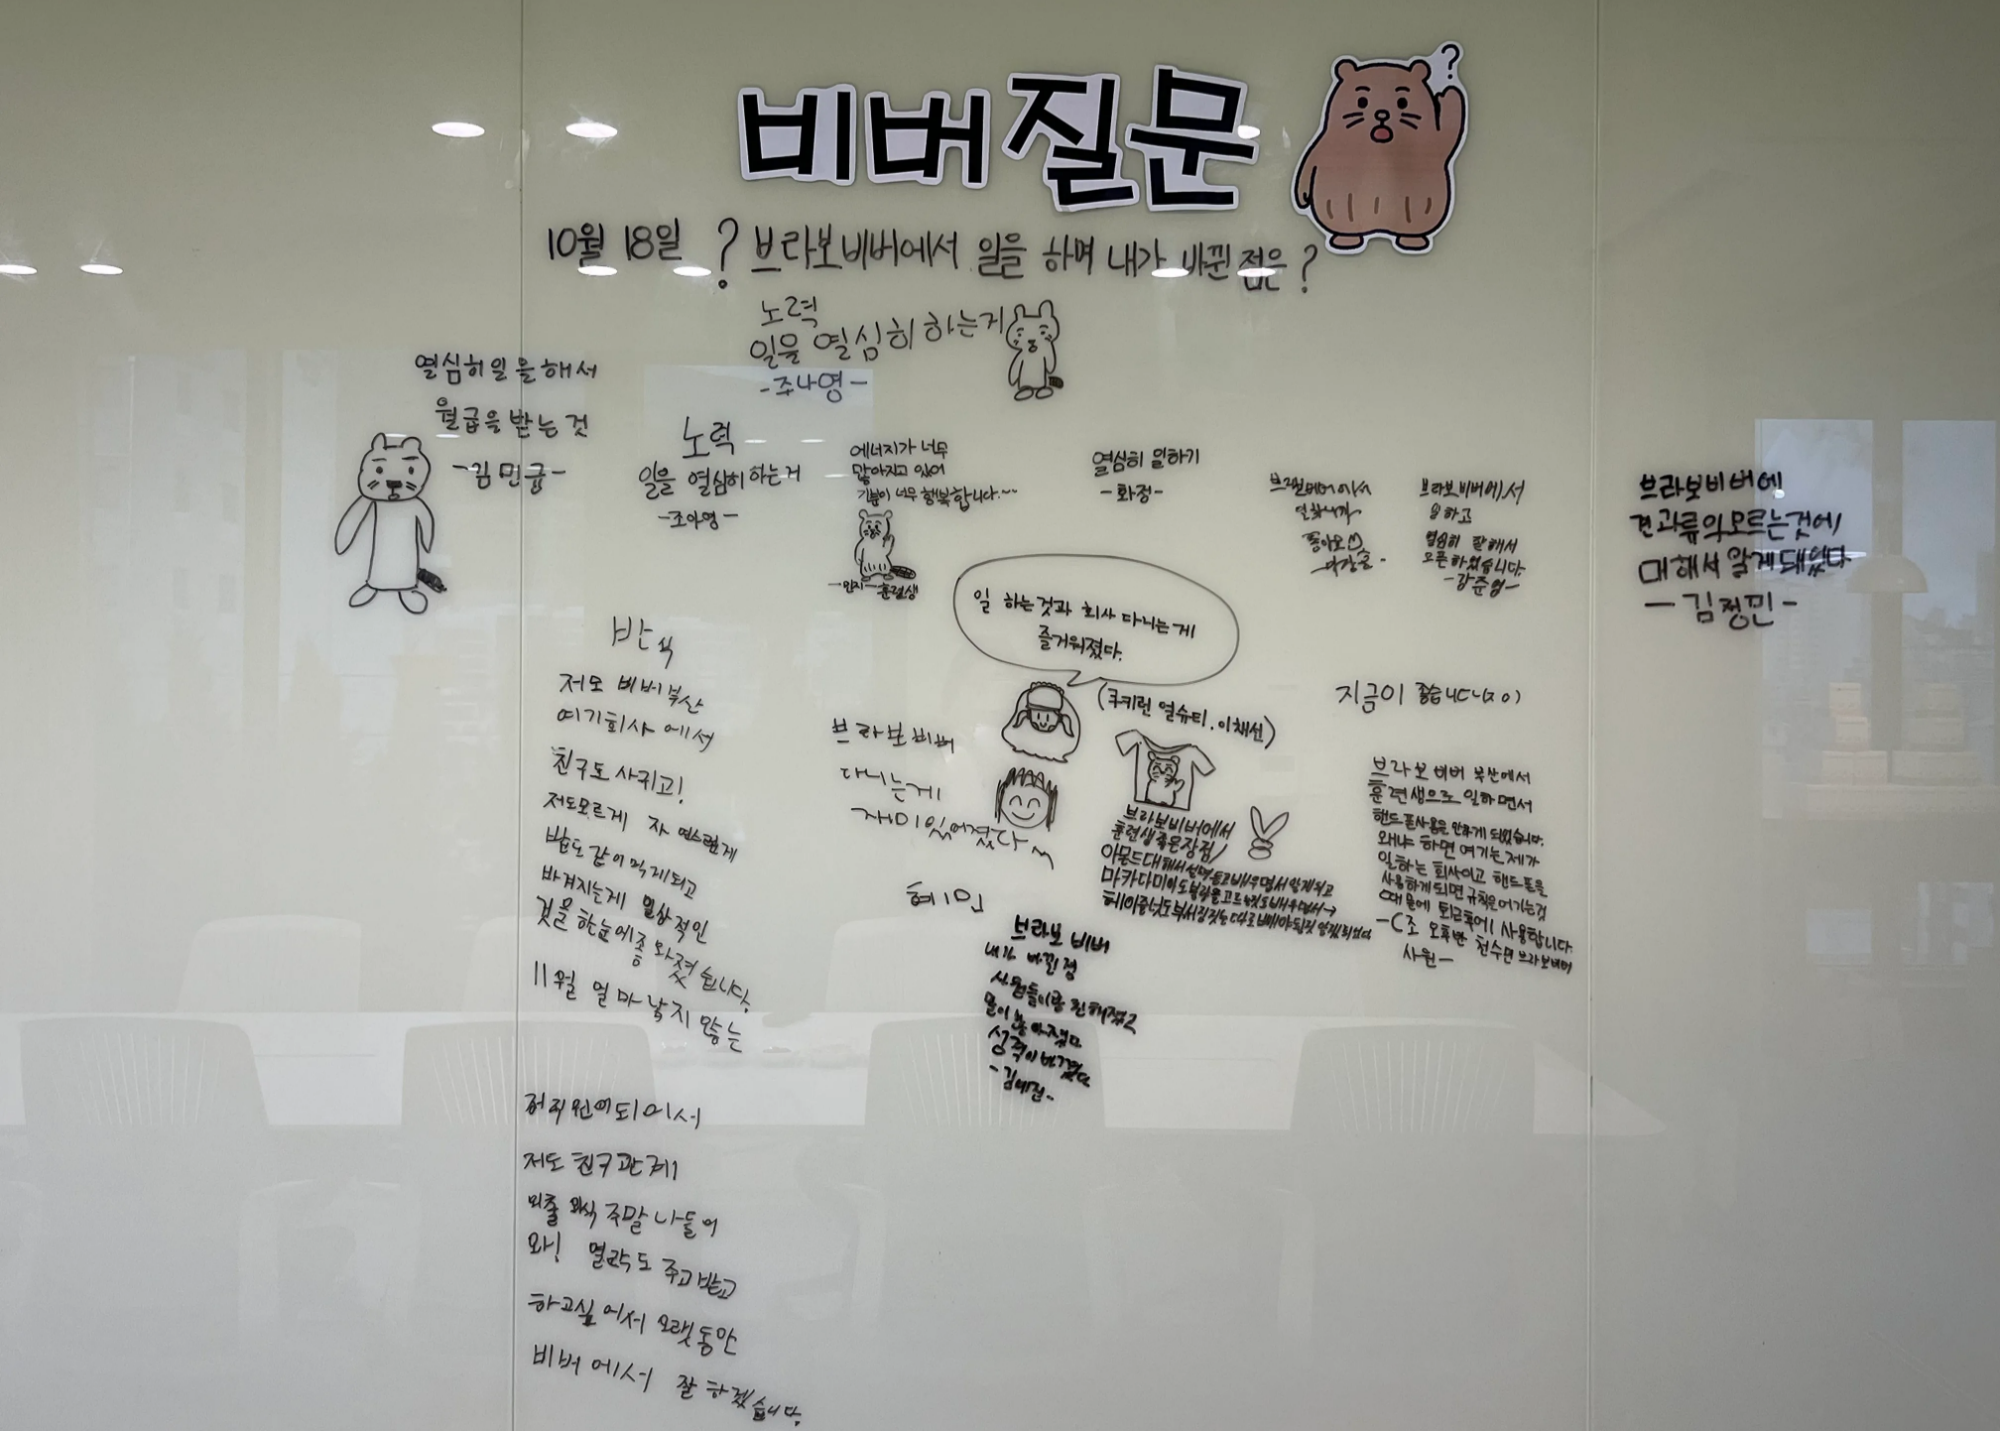 비버질문
?
10월 18일 ? 브라보비버에서 일을 하며 내가 바뀐 점은?
노력
일을 열심히 하는거
-조나영-
열심히 일을 해서
월급을 받는 것
-김민규-
노력
일을 열심히 하는거
-조아영-
에너지가 너무
많아지고 있어
기분이 너무 행복합니다.~~
훈련생
열심히 일하기
-화정-
브라보비버에서
좋아요
브라보비버에서
일하고
열심히 잘해서
오픈하였습니다.
-강준영-
브라보비버에
견과류의모르는것에
대해서 알게돼었다
-김정민-
일 하는것과 회사 다니는게
즐거워졌다.
(쿠키런 열슈티.이채선)
지금이 좋습니다(지ㅇ)
저모 비버부산
여기회사에서
친구도 사귀고!
저도모르게 자연스럽게
밥도같이먹게되고
바겨지는게 일상적인
것을 한눈에
11월 얼마남지 않는
저직원이되어서
저도 친구관계
외출 외식 주말 나들이
와! 연락도 주고받고
하고싶어서 오랫동안
비버에서 잘 하겠습니다.
브라보비버
다니는게
재미있어졌다
혜민
브라보비버에서
훈련생좋은장점/
브라보 비버
내가 바뀐점
사람들이랑 친해졌고
말이 많아졌다
성격이 바뀌었다
브라보비버 부산에서
훈련생으로 일하면서
핸드폰사용을 안하게 되었습니다.
왜냐 하면 여기는 제가
일하는 회사이고 핸드폰을
사용하게되면 규칙은어기는것
때문에 퇴근후에 사용합니다.
-C조 오후반 천수민 브라보비버
사원-